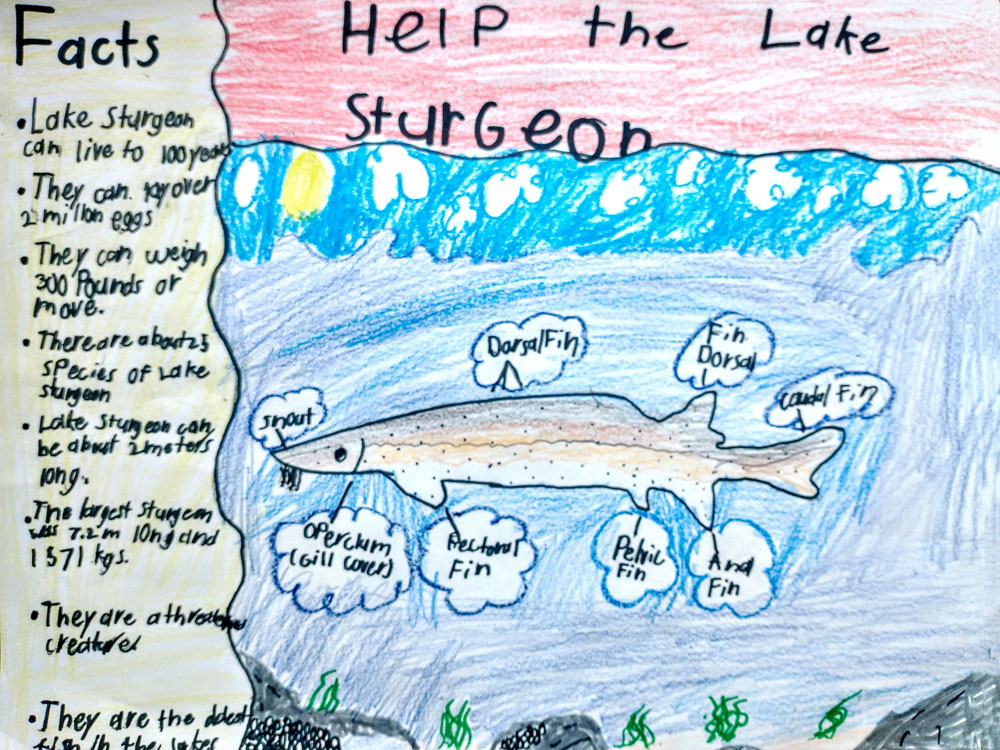 Facts
• Lake Sturgeon
can live to 100 years
• They can lay over
2 millon eggs
• They can weigh
300 Pounds or
more.
• There are about 25
species of Lake
sturgeon
• Lake Sturgeon can
be about 2 meters
long.
• The largest Sturgeon
was 7.2 m long and
1571 kgs.
• They are a
creature
• They are the oldest
fish in the lakes
Help the Lake
SturGeon
Dorsal Fin
Fin
Dorsal
caudal Fin
snout
operclum
(Gill cover)
Pectoral
Fin
Pelvic
Fin
Anal
Fin